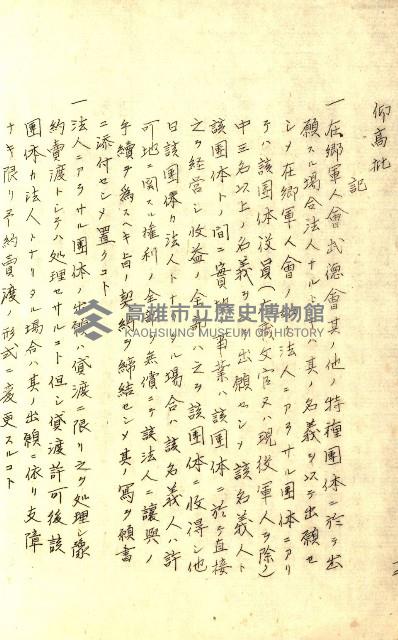 仰高批
記
一在郷軍人會武德會其ノ他ノ特種團体ニ於テ出
願スル場合法人ナルトキハ其ノ名義ヲ以テ出願セ
シメ在郷軍人會ノ 法人ニアラサル團体ニアリ
テハ該團体役員( 文官又ハ現役軍人ヲ除ク)
中三名以上ノ名義ヲ 出願セシメ該名義人ト
該團体トノ間ニ實地 事業ハ該團体ニ於テ直接
之ヲ経営シ收益ノ全部ハ之ヲ該團体ニ收得シ他
日該團体カ法人トナリタル場合ハ該名義人ハ許
可地ニ関スル權利ノ全部ヲ無償ニテ該法人ニ讓與ノ
手續ヲ為スヘキ旨ノ契約ヲ締結セシメ其ノ寫ヲ願書
ニ添付セシメ置クコト
一法人ニアラサル團体ノ出願ハ貸渡ニ限リ之ヲ処理シ豫
約賣渡トシテハ処理セサルコト但シ貸渡許可後該
團体カ法人トナリタル場合ハ其ノ出願ニ依リ支障
ナキ限リ予約賣渡ノ形式ニ変更スルコト
高雄市立歷史博物館
KAOHSIUNG MUSEUM OF HISTORY